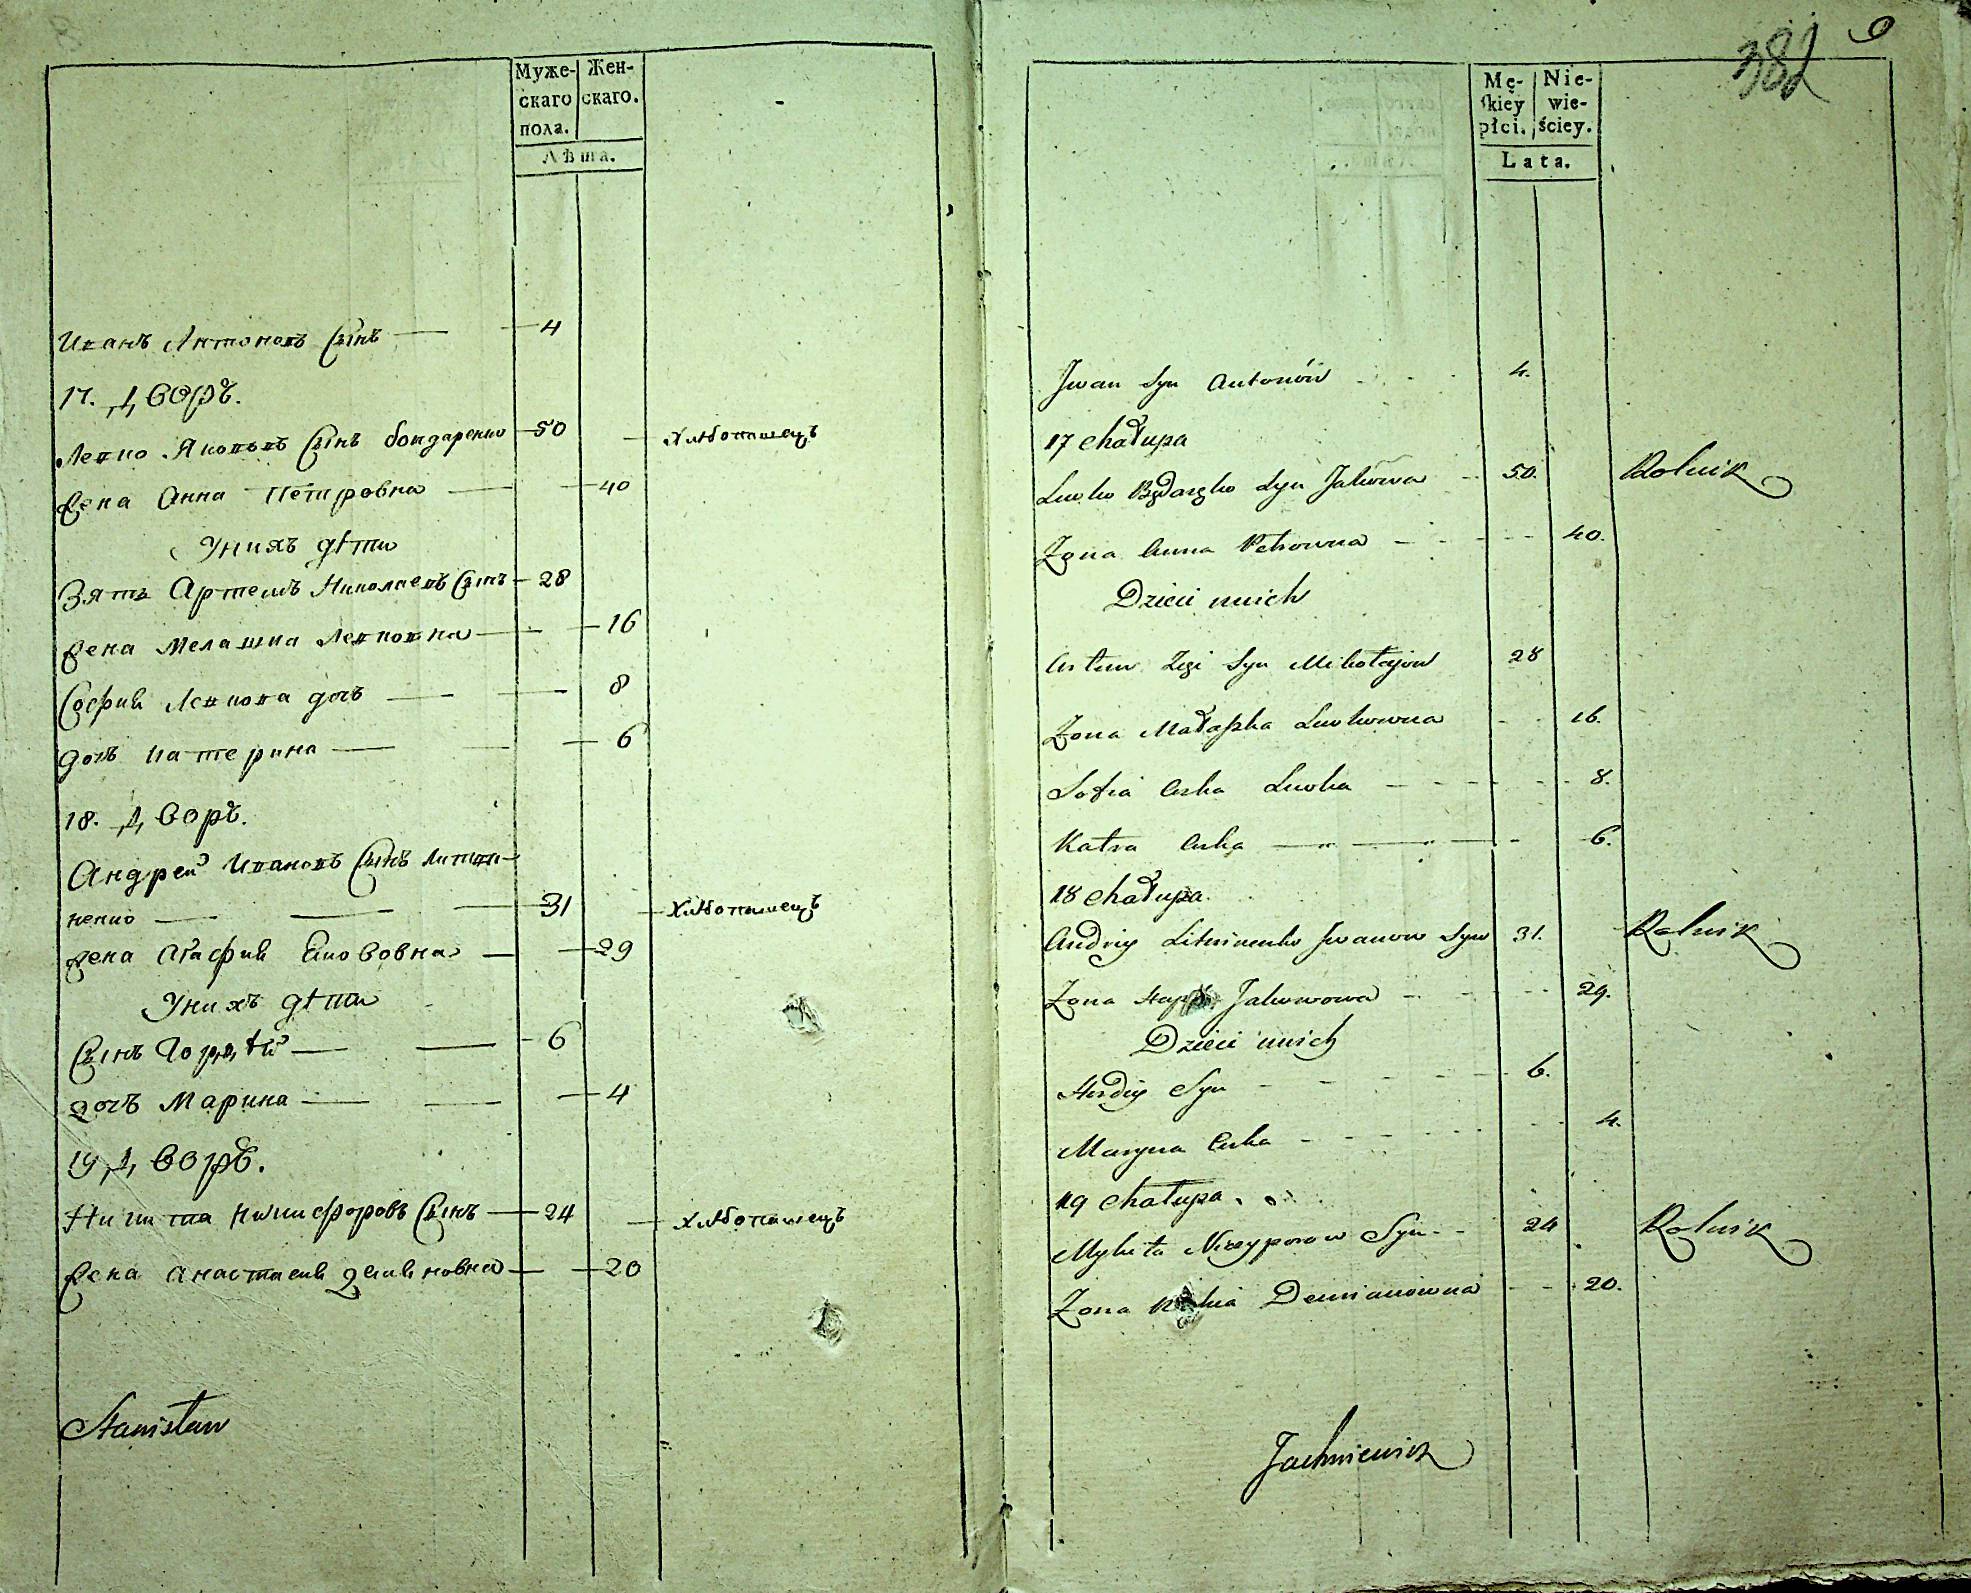 Муже-
скаго
пола.
Жен-
скаго.
Лѣта.
Иванъ Антоновъ Сынъ 4
17. Дворъ.
Левко Яковлевъ Сынъ бондаренко 50 хлѣбопашецъ
Жена Анна Петровна 40
У нихъ дѣти
Зять Артемъ Николаевъ Сынъ 28
Жена Мелашка Левковна 16
София Левкова дочь 8
дочь Катерина 6
18. Дворъ.
Андрей Ивановъ Сынъ Литви-
ненко 31 хлѣбопашецъ
Жена Агафия Якововна 29
У нихъ дѣти
Сынъ Гордѣй 6
дочь Марина 4
19 Дворъ.
Никита Никифоровъ Сынъ 24 хлѣбопашецъ
Жена Анастасия Демяновна 20
Stanisław
382 9
Mę-
skiey
płci.
Nie-
wie-
ściey.
Lata.
Jwan Syn Antonów 4.
17 Chałupa
Lewko Syn Jakowa 50. Rolnik
Zona Anna Petrowna 40.
Dzieci unich
Artem Syn Mikołajów 28
Zona Małaszka Lewkowna 16.
Sofia Curka Lewka 8.
Katra Curka 6.
18 Chałupa.
Andriy Litwinenko Jwanow Syn 31. Rolnik
Zona Jakowowa 29.
Dzieci unich
Hordiy Syn 6.
Maryna Curka 4.
19 Chałupa.
Mykita Niczyporow Syn 24 Rolnik
Zona Demianowna 20.
Jachniewicz